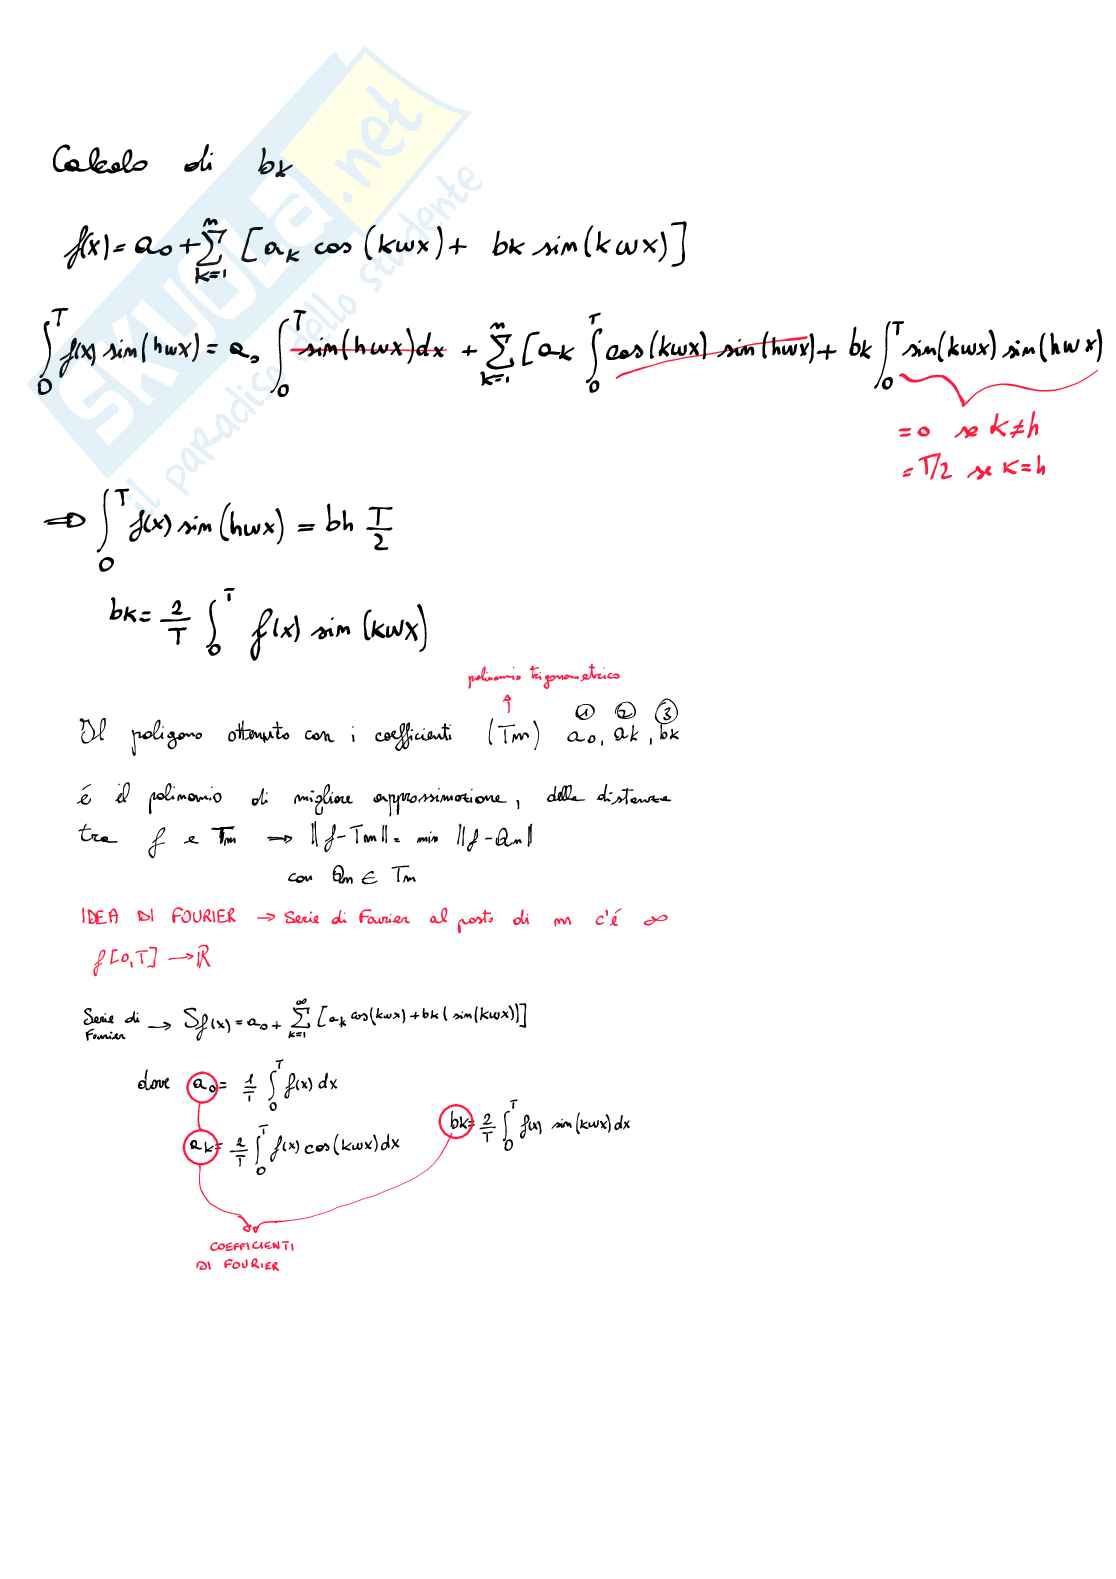 SKUOLA.net
il paradiso dello studente
Calcolo di bk
f(x) = a₀ + ∑_{k=1}^{m} [a_k cos(kωx) + bk sin(kωx)]
∫₀ᵀ f(x) sin(hωx) = a₀ ∫₀ᵀ sin(hωx)dx + ∑_{k=1}^{m} [ak ∫₀ᵀ cos(kωx) sin(hωx) + bk ∫₀ᵀ sin(kωx) sin(hωx)
= 0 se k≠h
= T/2 se k=h
⇒ ∫₀ᵀ f(x) sin(hωx) = bh T/2
bk = 2/T ∫₀ᵀ f(x) sin(kωx)
polinomio trigonometrico
↑ ① ② ③
Il poligono ottenuto con i coefficienti (Tm) a₀, ak, bk
é il polinomio di migliore approssimazione, della distanza
tra f e Tm → ||f-Tm|| = min ||f-Qm||
con Qm ∈ Tm
IDEA DI FOURIER → Serie di Fourier al posto di m c'é ∞
f[0,T] → ℝ
Serie di Fourier → Sf(x) = a₀ + ∑_{k=1}^{∞} [a_k cos(kωx) + bk (sin(kωx))]
dove a₀ = 1/T ∫₀ᵀ f(x) dx
ak = 2/T ∫₀ᵀ f(x) cos(kωx) dx bk = 2/T ∫₀ᵀ f(x) sin(kωx) dx
COEFFICIENTI
DI FOURIER